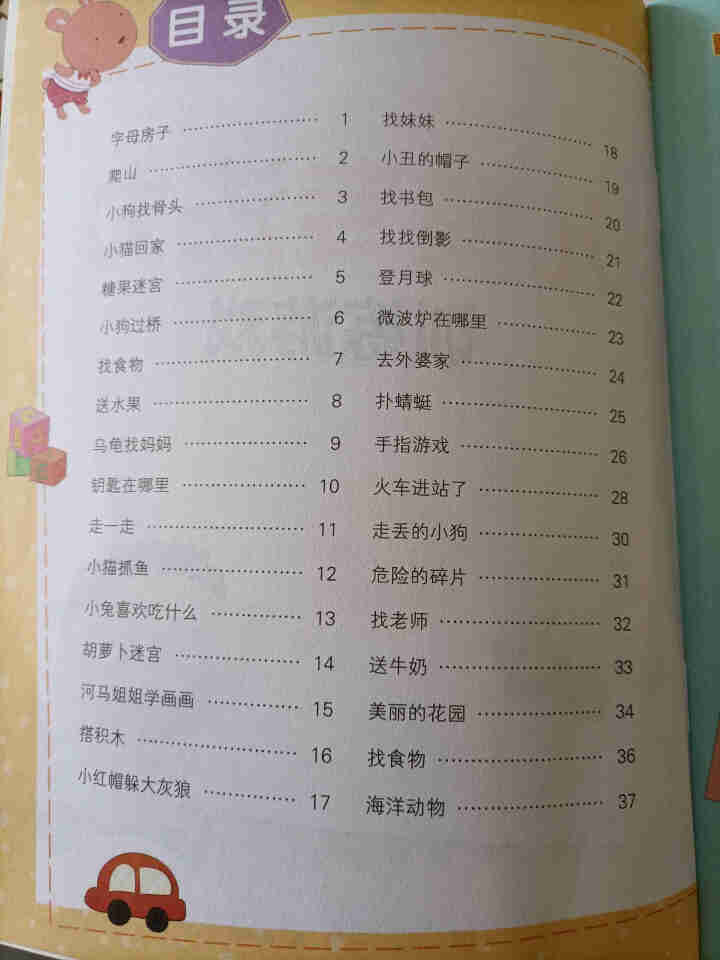 目录
字母房子 ………………… 1
爬山 ………………… 2
小狗找骨头 ………………… 3
小猫回家 ………………… 4
糖果迷宫 ………………… 5
小狗过桥 ………………… 6
找食物 ………………… 7
送水果 ………………… 8
乌龟找妈妈 ………………… 9
钥匙在哪里 ………………… 10
走一走 ………………… 11
小猫抓鱼 ………………… 12
小兔喜欢吃什么 ………………… 13
胡萝卜迷宫 ………………… 14
河马姐姐学画画 ………………… 15
搭积木 ………………… 16
小红帽躲大灰狼 ………………… 17
找妹妹 ………………… 18
小丑的帽子 ………………… 19
找书包 ………………… 20
找找倒影 ………………… 21
登月球 ………………… 22
微波炉在哪里 ………………… 23
去外婆家 ………………… 24
扑蜻蜓 ………………… 25
手指游戏 ………………… 26
火车进站了 ………………… 28
走丢的小狗 ………………… 30
危险的碎片 ………………… 31
找老师 ………………… 32
送牛奶 ………………… 33
美丽的花园 ………………… 34
找食物 ………………… 36
海洋动物 ………………… 37